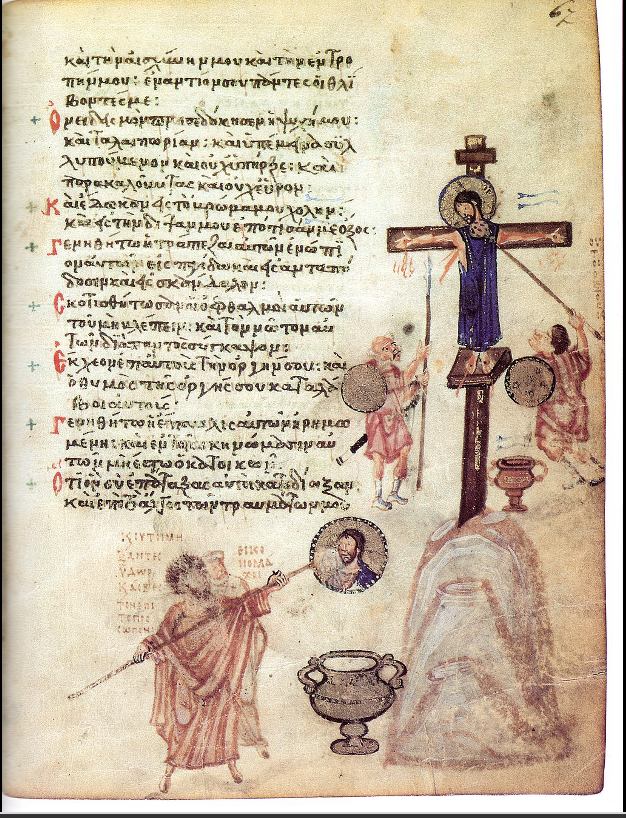 67
καὶ τὴν αἰσχύνην μου καὶ τὴν ἐντρο
πήν μου: ἐναντίον σου πάντες οἱ θλί
βοντές με:
Ὀνειδισμὸν προσεδόκησεν ἡ ψυχή μου:
καὶ ταλαιπωρίαν: καὶ ὑπέμεινα συλ
λυπούμενον καὶ οὐχ ὑπῆρξε: καὶ
παρακαλοῦντας καὶ οὐχ εὗρον:
Καὶ ἔδωκαν εἰς τὸ βρῶμα μου χολήν:
καὶ εἰς τὴν δίψαν μου ἐπότισάν με ὄξος:
Γενηθήτω ἡ τράπεζα αὐτῶν ἐνώπι
ον αὐτῶν εἰς παγίδα καὶ εἰς ἀνταπό
δοσιν καὶ εἰς σκάνδαλον:
Σκοτισθήτωσαν οἱ ὀφθαλμοὶ αὐτῶν
τοῦ μὴ βλέπειν: καὶ τὸν νῶτον αὐ
τῶν διαπαντὸς σύγκαμψον:
Ἔκχεον ἐπ' αὐτοὺς τὴν ὀργήν σου: καὶ
ὁ θυμὸς τῆς ὀργῆς σου καταλά
βοι αὐτούς:
Γενηθήτω ἡ ἔπαυλις αὐτῶν ἠρημω
μένη: καὶ ἐν τοῖς σκηνώμασιν αὐ
τῶν μὴ ἔστω ὁ κατοικῶν:
Ὅτι ὃν σὺ ἐπάταξας αὐτοὶ κατεδίωξαν
καὶ ἐπὶ τὸ ἄλγος τῶν τραυμάτων μου
ΕΙΚΟ
ΝΟΜΑ
ΧΟΙ
ΥΔΩΡ